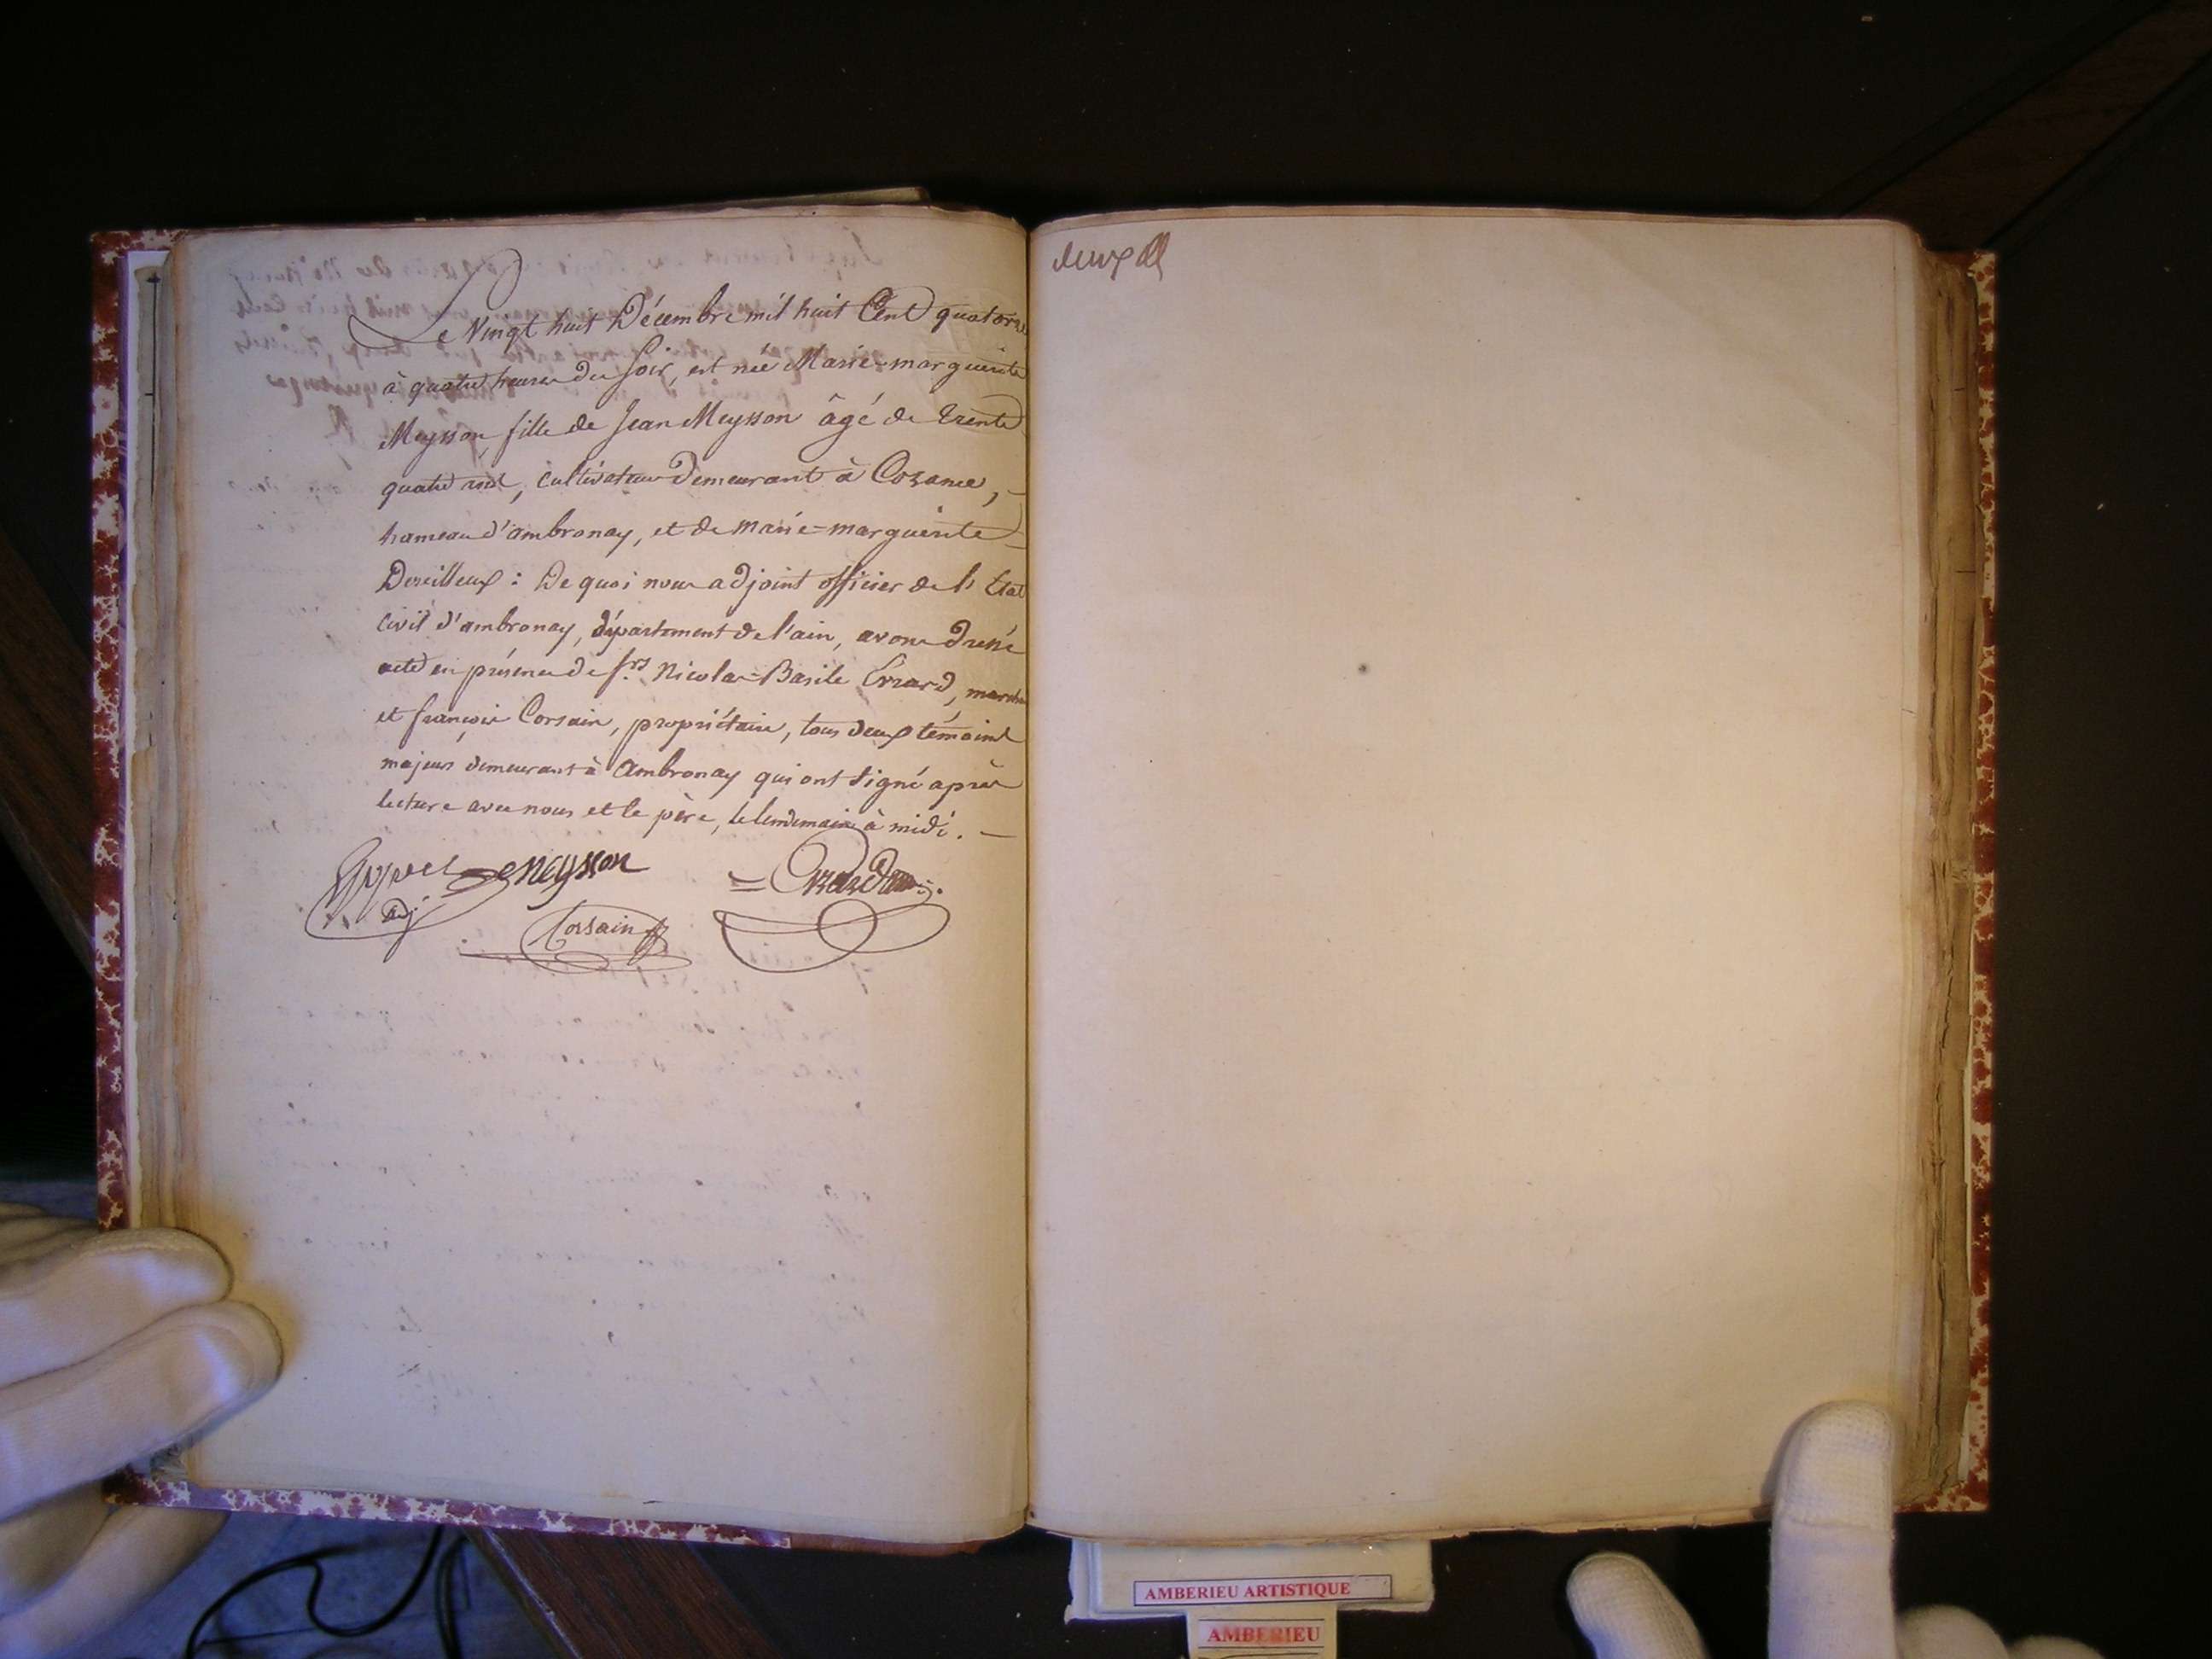 Le Vingt huit Décembre mil huit Cent quatorze
à quatre heures du soir, est née Marie-marguerite
Meysson, fille de Jean Meysson âgé de trente
quatre ans, cultivateur demeurant à Cozance,
hameau d'ambronay, et de marie=marguerite
: De quoi nous adjoint officier de l'Etat
civil d'ambronay, département de l'ain, avons dressé
acte en présence de srs. Nicolas=Basile Evrard, march
et françois Corsain, propriétaire, tous deux témoins
majeurs demeurant à Ambronay qui ont signé après
lecture avec nous et le père, le lendemain à midi.
Meysson
adj.
Corsain
AMBERIEU ARTISTIQUE
AMBERIEU